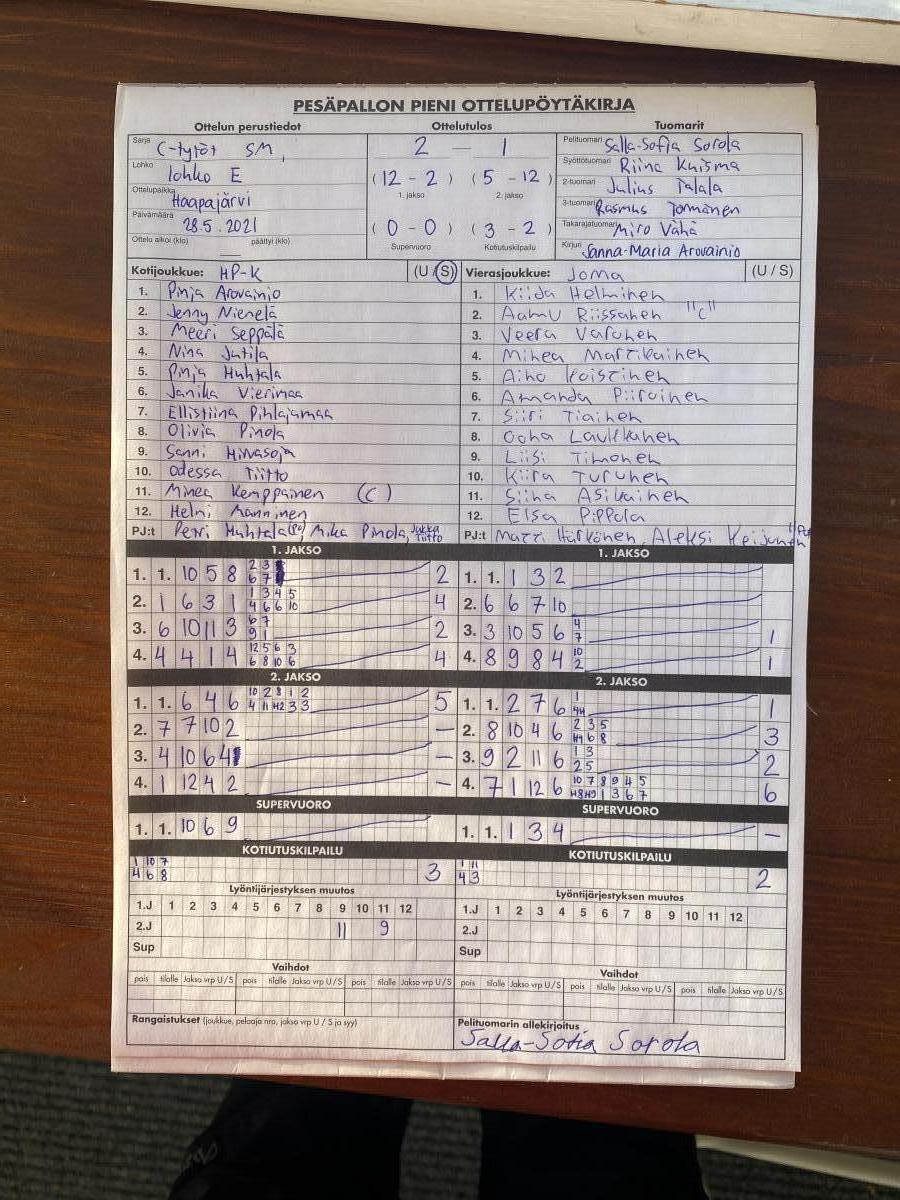 PESÄPALLON PIENI OTTELUPÖYTÄKIRJA
Ottelun perustiedot
Sarja C-tytöt SM,
Lohko lohko E
Ottelupaikka Haapajärvi
Päivämäärä 28.5.2021
Ottelu alkoi (klo) päättyi (klo)
Ottelutulos
2 — 1
(12 - 2) (5 - 12)
1. jakso 2. jakso
(0 - 0) (3 - 2)
Supervuoro Kotiutuskilpailu
Tuomarit
Pelituomari Salla-Sofia Sorola
Syöttötuomari Riina Kuisma
2-tuomari Julius Talala
3-tuomari Rasmus Tormänen
Takarajatuomari Miro Vähä
Kirjuri Sanna-Maria Arovainio
Kotijoukkue: HP-K (U / S)
1. Pinja Arovainio
2. Jenny Nienelä
3. Meeri Seppälä
4. Nina Jutila
5. Pinja Huhtala
6. Janika Vierimaa
7. Ellistiina Pihlajamaa
8. Olivia Pinola
9. Sanni Hirvasoja
10. Odessa Tiitto
11. Minea Kemppainen (C)
12. Helmi Manninen
PJ:t Petri Huhtala (PP), Mika Pinola, Jukka Tiitto
Vierasjoukkue: JoMa (U / S)
1. Kiida Helminen
2. Aamu Riissanen "C"
3. Veera Varonen
4. Minea Martikainen
5. Aino Koistinen
6. Amanda Piiroinen
7. Siiri Tiainen
8. Oona Laukkanen
9. Liisi Timonen
10. Kiira Turunen
11. Siina Asikainen
12. Elsa Pippola
PJ:t Matti Hirkönen, Aleksi Keijonen
1. JAKSO
1. 1. 10 5 8 2 3 2
6 7
2. 1 6 3 1 1 3 4 5 4
4 6 6 10
3. 6 10 11 3 6 7 2
9 1
4. 4 4 1 4 12 5 6 3 4
6 8 10 6
1. JAKSO
1. 1. 1 3 2
2. 6 6 7 10
3. 3 10 5 6 4 1
7
4. 8 9 8 4 10 1
2
2. JAKSO
1. 1. 6 4 6 10 2 8 1 2 5
4 11 H2 3 3
2. 7 7 10 2 —
3. 4 10 6 4 —
4. 1 12 4 2 —
2. JAKSO
1. 1. 2 7 6 1 1
4H
2. 8 10 4 6 2 3 5 3
H4 6 8
3. 9 2 11 6 1 3 2
2 5
4. 7 1 12 6 10 7 8 9 4 5 6
H8 H9 1 3 6 7
SUPERVUORO
1. 1. 10 6 9
SUPERVUORO
1. 1. 1 3 4 —
KOTIUTUSKILPAILU
1 10 7 3
4 6 8
KOTIUTUSKILPAILU
1 11 2
4 3
Lyöntijärjestyksen muutos
1.J 1 2 3 4 5 6 7 8 9 10 11 12
2.J 11 9
Sup
Lyöntijärjestyksen muutos
1.J 1 2 3 4 5 6 7 8 9 10 11 12
2.J
Sup
Vaihdot
pois tilalle Jakso vrp U/S pois tilalle Jakso vrp U/S pois tilalle Jakso vrp U/S
Vaihdot
pois tilalle Jakso vrp U/S pois tilalle Jakso vrp U/S pois tilalle Jakso vrp U/S
Rangaistukset (joukkue, pelaaja nro, jakso vrp U / S ja syy)
Pelituomarin allekirjoitus
Salla-Sofia Sorola